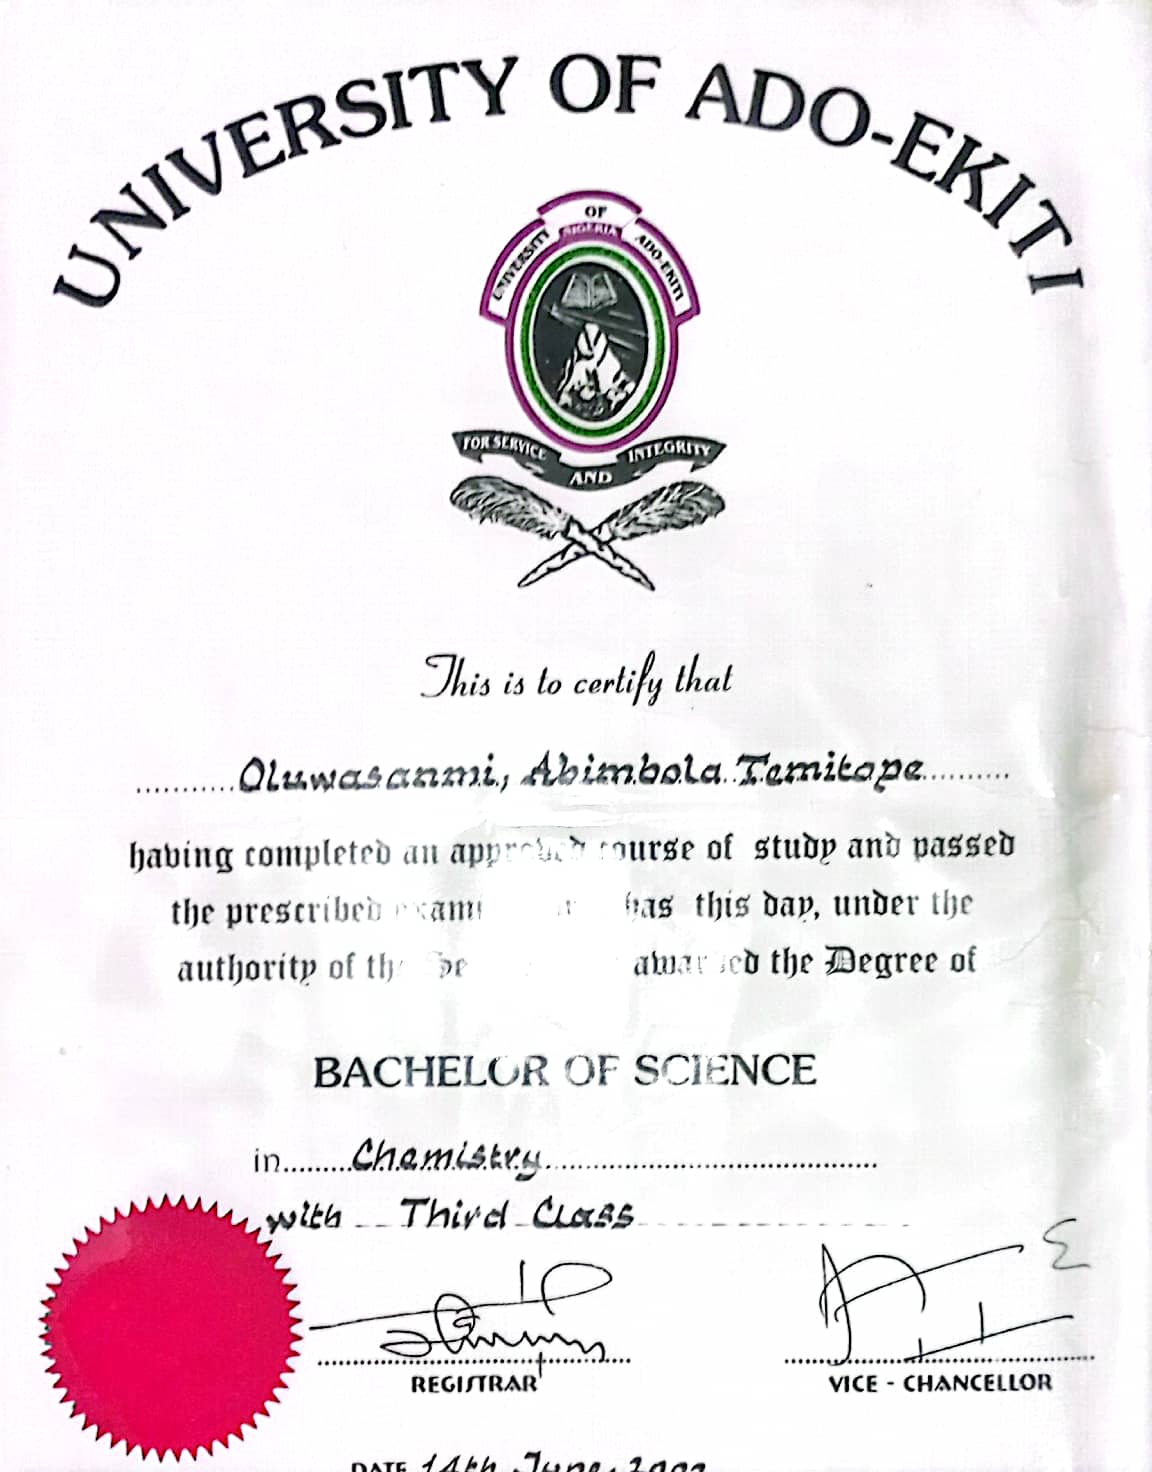 UNIVERSITY OF ADO-EKITI
UNIVERSITY OF ADO-EKITI
NIGERIA
FOR SERVICE AND INTEGRITY
This is to certify that
Oluwasanmi, Abimbola Temitope
having completed an approved course of study and passed
the prescribed has this day, under the
authority of the awarded the Degree of
BACHELOR OF SCIENCE
in Chemistry
with Third Class
REGISTRAR
VICE - CHANCELLOR
DATE 14th June,